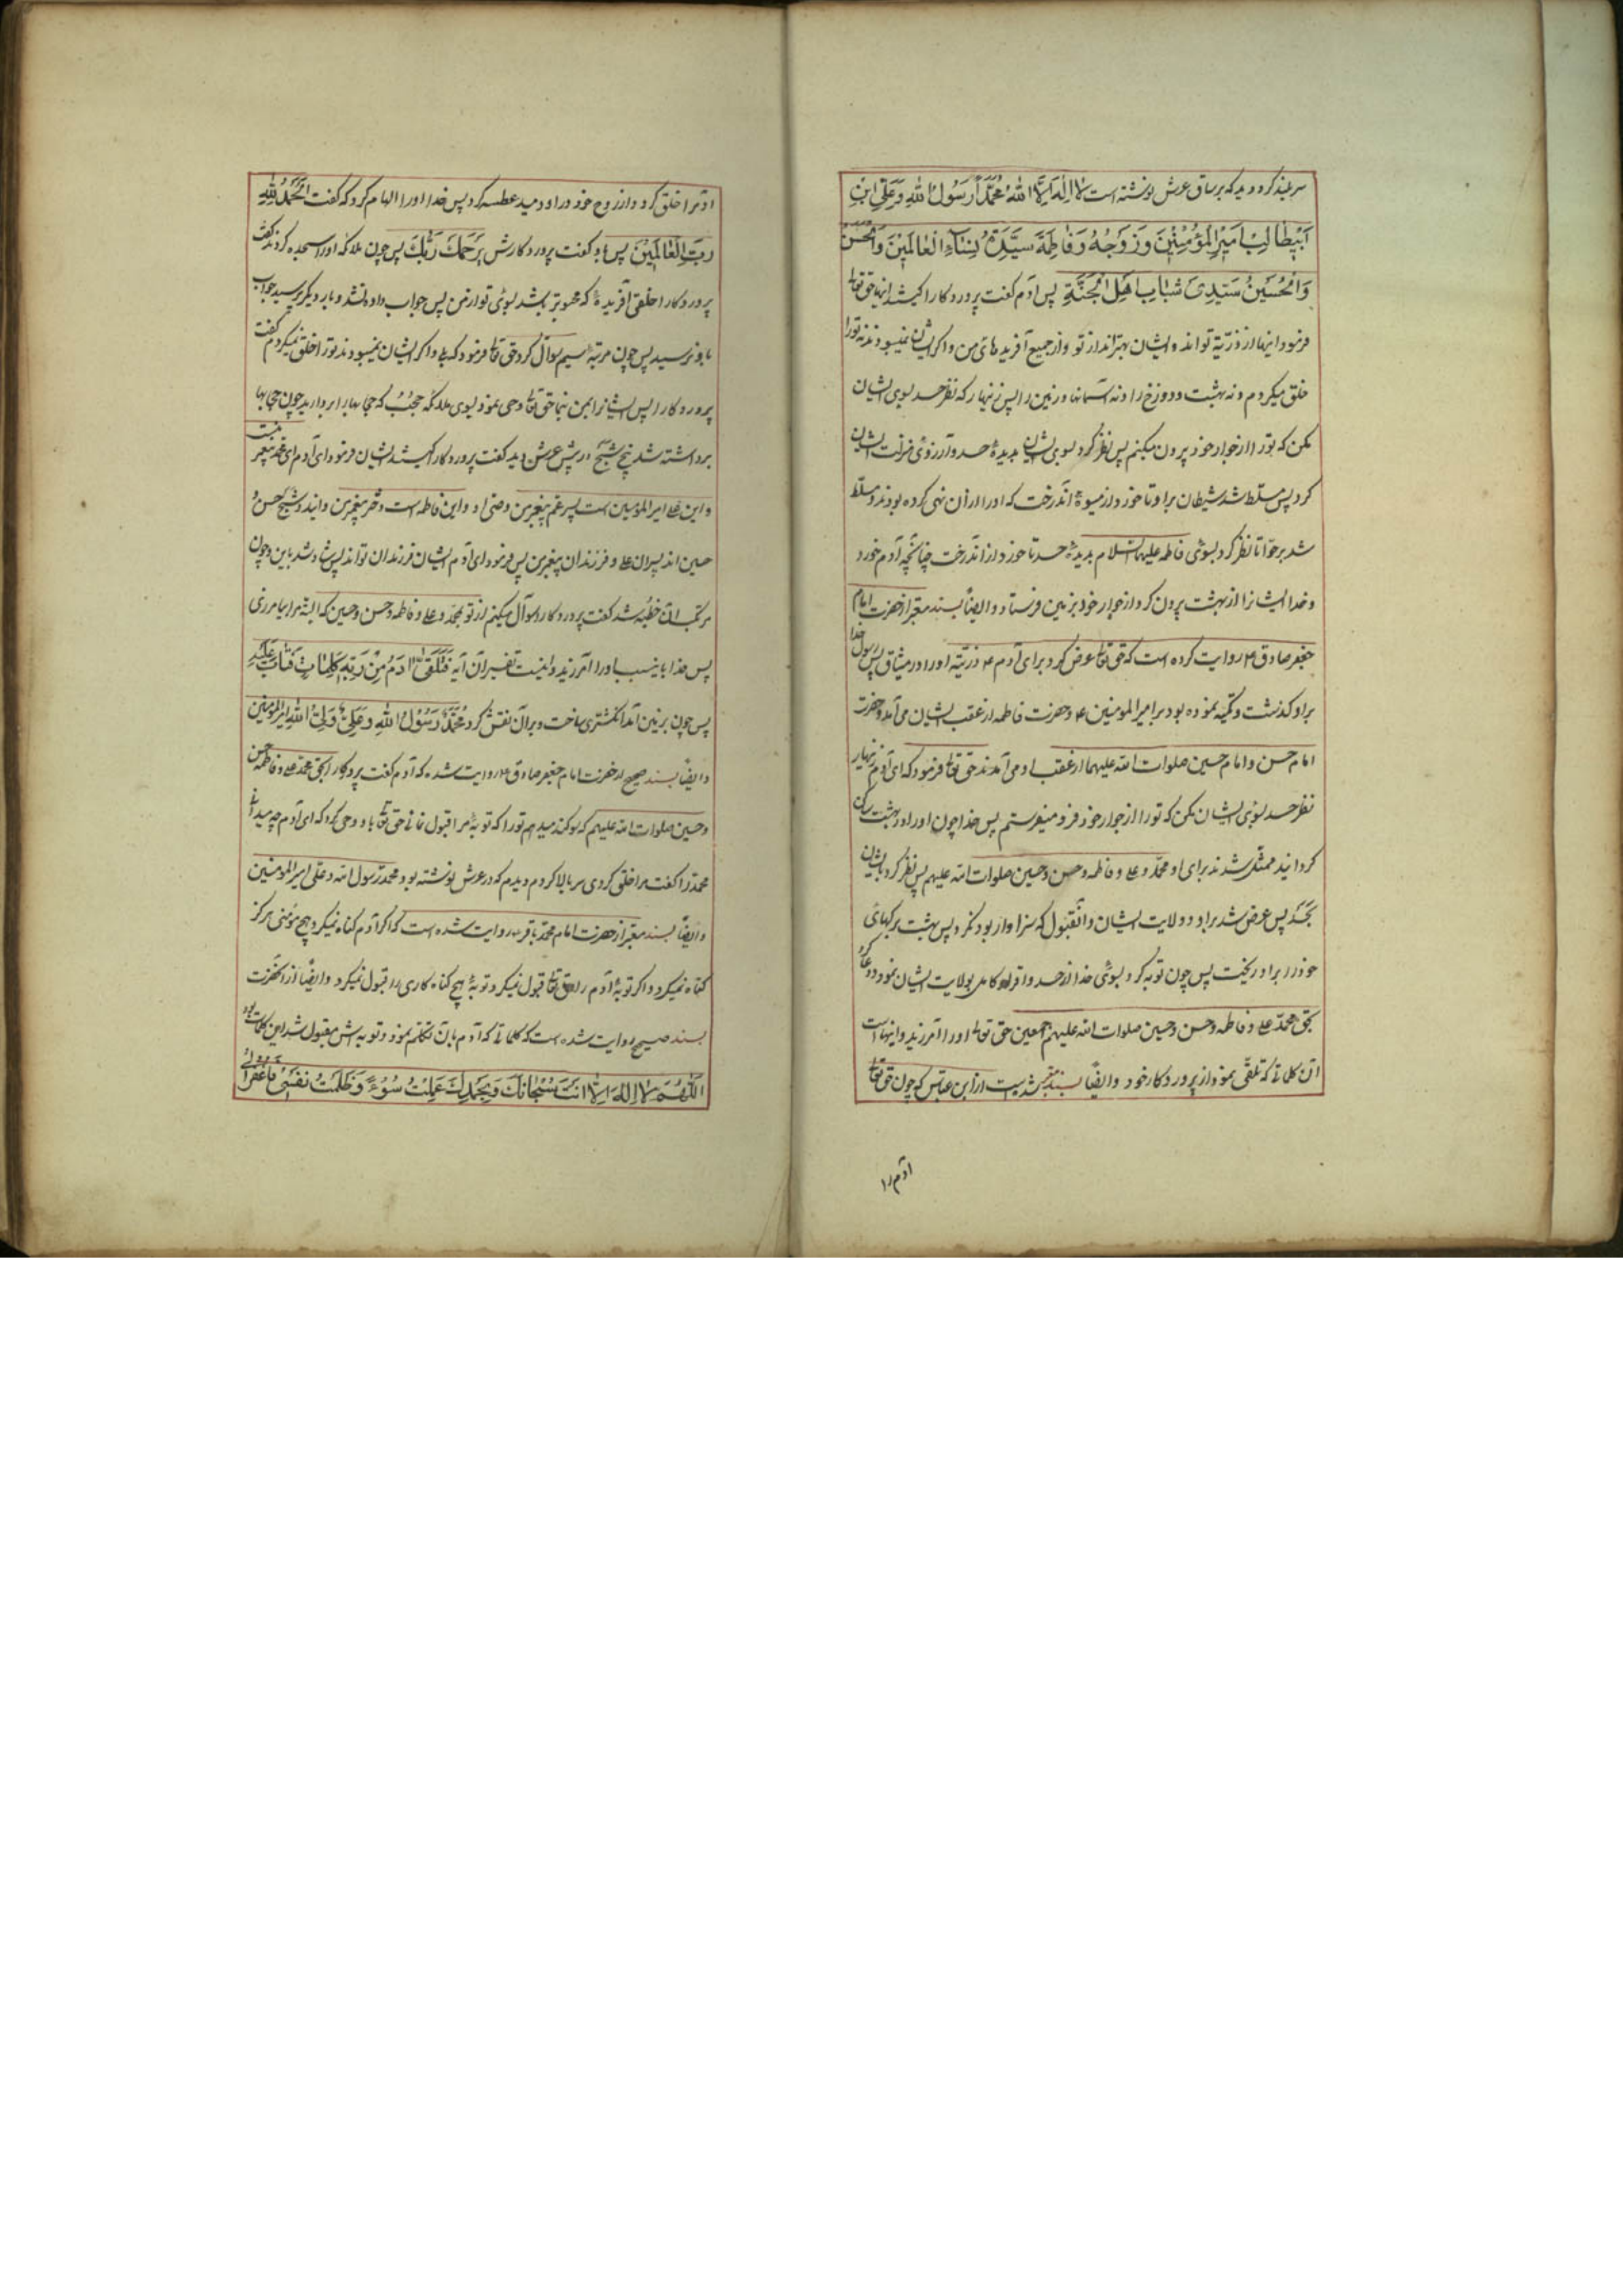 سر بلند کرد دید که بر ساق عرش نوشته است لا اِلهَ اِلَّا اللهُ مُحَمَّدٌ رَسُولُ اللهِ وَ عَلِیُّ ابْنُ
اَبیطالِبْ اَمیرُ الْمُؤْمِنینَ وَ زَوْجَتُهُ فاطِمَةُ سَیِّدَةُ نِسٰاءِ الْعٰالَمینَ وَ الْحَسَنُ
وَ الْحُسَیْنُ سَیِّدیٰ شَبٰابِ اَهْلِ الْجَنَّةِ پس آدم گفت پروردکارا کیستند اینها حق تعالی
فرمود اینها از ذرّیّه تواند و ایشان بهترانداز تو و از جمیع آفریدهای من و اگر ایشان نمیبودند نه تورا
خلق میکردم و نه بهشت و دوزخ را و نه آسمانها و زمین را پس زنهار که نظر حسد بسوی ایشان
مکن که تورا از جوار خود بیرون میکنم پس نظر کرد بسوی ایشان بدیدهٔ حسد و آرزوی منزلت ایشان
کرد پس مسلط شد شیطان بر او تا خورد از میوهٔ آندرخت که اورا از آن نهی کرده بودند و مسلط
شد بر حوّا تا نظر کرد بسوی فاطمه علیها السلام بدیدهٔ حسد تا خورد از آندرخت چنانچه آدم خورد
و خدا ایشانرا از بهشت بیرون کرد و از جوار خود بزمین فرستاد و ایضاً بسند معتبر از حضرت امام
جعفر صادق ع روایت کرده است که حق تعالی عرض کرد برای آدم ع ذرّیّه اورا در میثاق پس رسول خدا
بر او گذشت و تکیه نموده بود بر امیرالمومنین ع و حضرت فاطمه از عقب ایشان می آمد و حضرت
امام حسن و امام حسین صلوات الله علیهما از عقب او می آمدند حق تعالی فرمود که ای آدم زنهار
نظر حسد بسوی ایشان مکن که تورا از جوار خود فرو میفرستم پس خدا چون اورا در بهشت ساکن
گردانید ممثل شدند برای او محمد و علی و فاطمه و حسن و حسین صلوات الله علیهم پس نظر کرد بایشان
بحسد پس عرض شد بر او ولایت ایشان و آنقبول که سزاوار بود نکرد پس بهشت برگهای
خودرا بر او ریخت پس چون توبه کرد بسوی خدا از حسد و اقرار کامل بولایت ایشان نمود و دعا کرد
بحق محمد و علی و فاطمه و حسن و حسین صلوات الله علیهم اجمعین حق تعالی اورا آمرزید و اینهاست
آن کلماتی که تلقی نمود از پروردکار خود و ایضاً بسند معتبر از ابن عباس که چون حق تعالی
آدم را
آدم را خلق کرد و از روح خود در او دمید عطسه کرد پس خدا اورا الهام کرد که گفت اَلْحَمْدُ لِلّٰهِ
رَبِّ الْعٰالَمینَ پس باو گفت پروردکارش یَرْحَمُكَ رَبُّكَ پس چون ملائکه اورا سجده کردند گفت
پروردکارا خلقی آفریدهٔ که محبوبتر باشد بسوی تو از من پس جواب داده نشد و بار دیگر پرسید جواب
باو نرسید پس چون مرتبهٔ سیم سوال کرد حق تعالی فرمود که بلی و اگر ایشان نمیبودند تورا خلق نمیکردم گفت
پروردکارا پس ایشانرا بمن بنما حق تعالی وحی نمود بسوی ملائکه حجب که حجابها را بردارید چون حجابها
برداشته شد پنج شبح در پیش عرش دید گفت پروردکارا کیستند ایشان فرمود ای آدم این محمد پیغمبر منست
و این علی امیرالمومنین است پسر عم پیغمبر من و وصی او و این فاطمه است دختر پیغمبر من و این دو شبح حسن و
حسین اند پسران علی و فرزندان پیغمبر من پس فرمود ای آدم ایشان فرزندان تواند پس شاد شد باین و چون
مرتکب آن خطیئه شد گفت پروردکارا سوال میکنم از تو بمحمد و علی و فاطمه و حسن و حسین که البته مرا بیامرزی
پس خدا باینسبب اورا آمرزید و اینست تفسیر آن آیه فَتَلَقّیٰ اٰدَمُ مِنْ رَبِّهِ کَلِمٰاتٍ فَتٰابَ عَلَیْهِ
پس چون بزمین آمد انگشتری ساخت و بر آن نقش کرد مُحَمَّدٌ رَسُولُ اللهِ وَ عَلِیٌّ وَلِیُّ اللهِ امیرالمومنین
و ایضاً بسند صحیح از حضرت امام جعفر صادق ع روایت شده که آدم گفت پروردکارا بحق محمد و علی و فاطمه و حسن
و حسین صلوات الله علیهم که سوکند میدهم تورا که توبهٔ مرا قبول نمائی حق تعالی باو وحی کرد که ای آدم چه میدانی
محمدرا گفت مرا خلق کردی سر بالا کردم دیدم که در عرش نوشته بود محمد رسول الله و علی امیرالمومنین
و ایضاً بسند معتبر از حضرت امام محمد باقر ع روایت شده است که اگر آدم گناه نمیکرد هیچ مومنی هرگز
گناه نمیکرد و اگر توبهٔ آدم را حق تعالی قبول نمیکرد توبهٔ هیچ گناه کاری را قبول نمیکرد و ایضاً از آنحضرت
بسند صحیح روایت شده است که کلماتی که آدم بآن تکلم نمود و توبه اش مقبول شد این کلمات بود
اَللّٰهُمَّ لا اِلٰهَ اِلّٰا اَنْتَ سُبْحٰانَكَ وَ بِحَمْدِكَ عَمِلْتُ سُوءً وَ ظَلَمْتُ نَفْسی فَاغْفِرْ لی